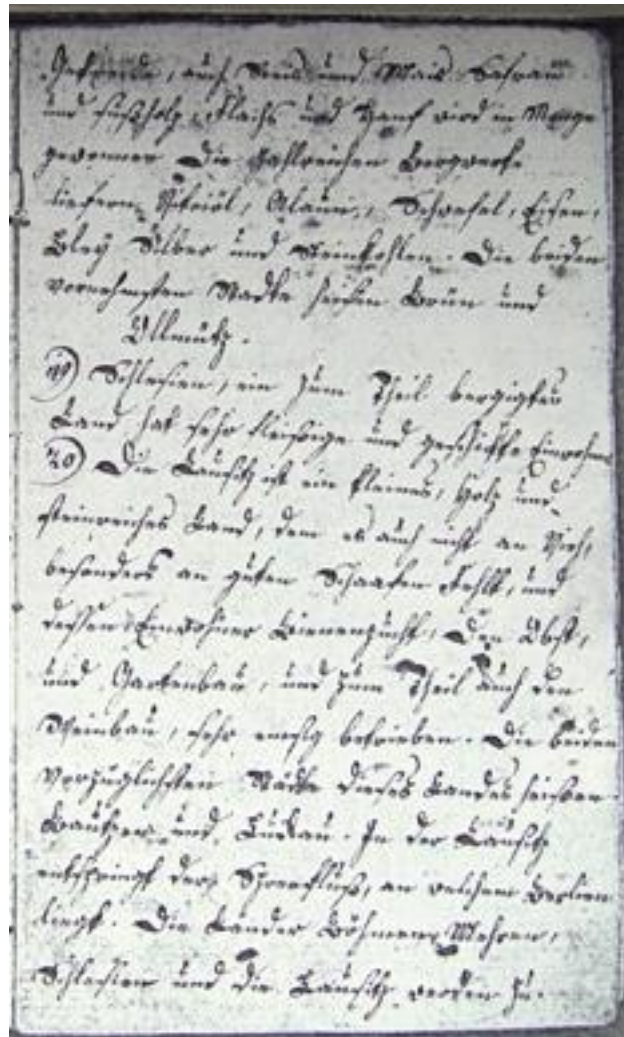 Getreide, auch Reis und Mais Safran
und Süßholz, Flachs und Hanf wird in Menge
gewonnen Die zahlreichen Bergwerke
liefern Vitriol, Alaun, Schwefel, Eisen,
Bley Silber und Steinkohlen. Die beiden
vornehmsten Städte heißen Brün und
Ollmütz.
19) Schlesien, ein zum Theil bergigtes
Land hat sehr fleißige und geschickte Einwohner
20) Die Lausitz ist ein kleines, Holz und
steinreiches Land, dem es auch nicht an Vieh,
besonders an guten Schaafen fehlt, und
dessen Einwohner Bienenzucht, Den Obst,
und Gartenbau, und zum Theil auch den
Weinbau, sehr emsig betrieben. Die beiden
vorzüglichsten Städte dieses Landes heißen
Bautzen und Luckau. In der Lausitz
entspringt der Spreefluß, an welchem Berlien
liegt. Die Länder Böhmen, Mehren,
Schlesien und die Lausitz werden zu-